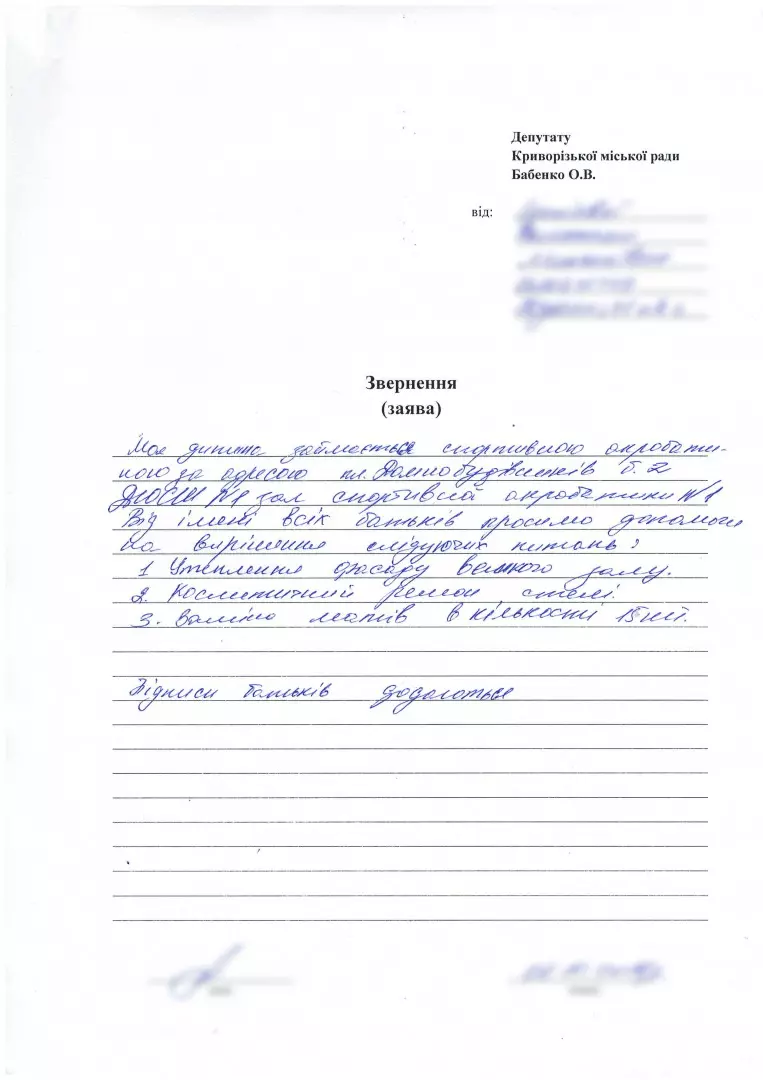 Депутату
Криворізької міської ради
Бабенко О.В.
від:
Звернення
(заява)
Моя дитина займається спортивною акробати-
кою за адресою пл. Домнобудівників б. 2
ДЮСШ №1 зал спортивної акробатики №1
Від імені всіх батьків просимо допомоги
на вирішення слідуючих питань:
1 Утеплення фасаду великого залу.
2. Косметичний ремон стелі.
3. Заміна матів в кількості 15 шт.
Підписи батьків додаються